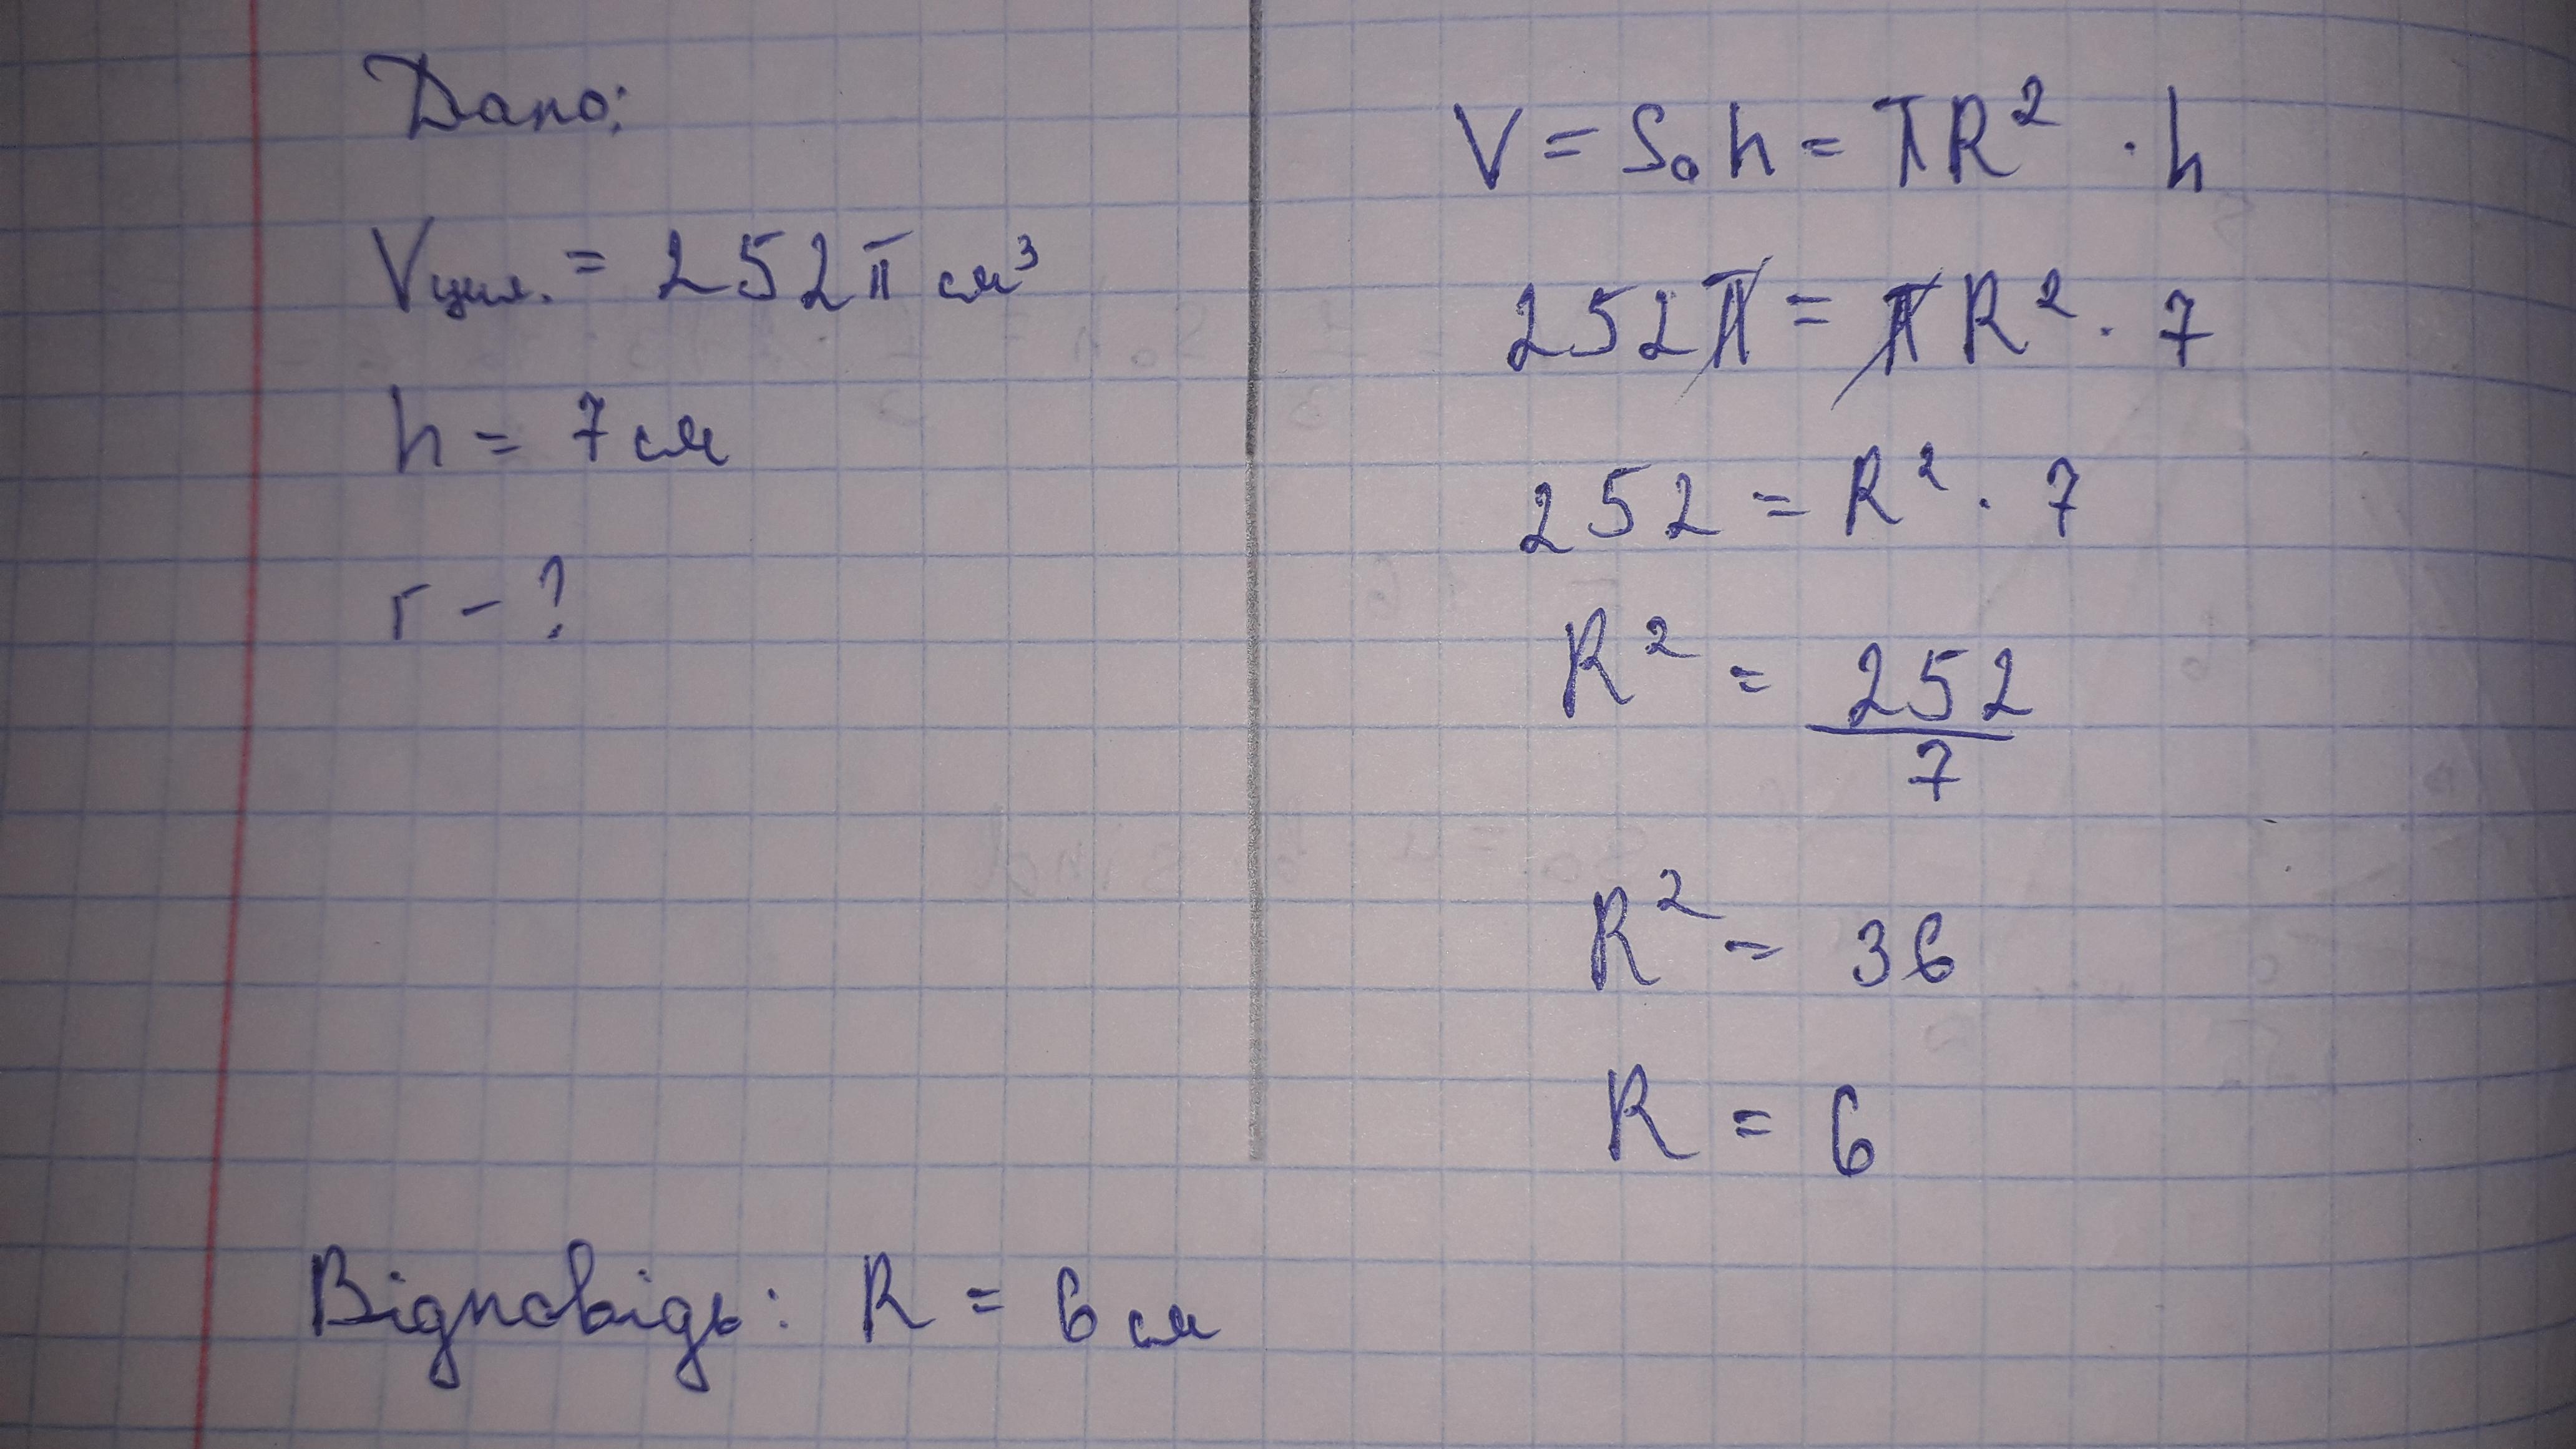 Дано:
Vцил. = 252π см³
h = 7 см
r - ?
V = Sₒ h = πR² · h
252π = πR² · 7
252 = R² · 7
R² = 252/7
R² = 36
R = 6
Відповідь: R = 6 см